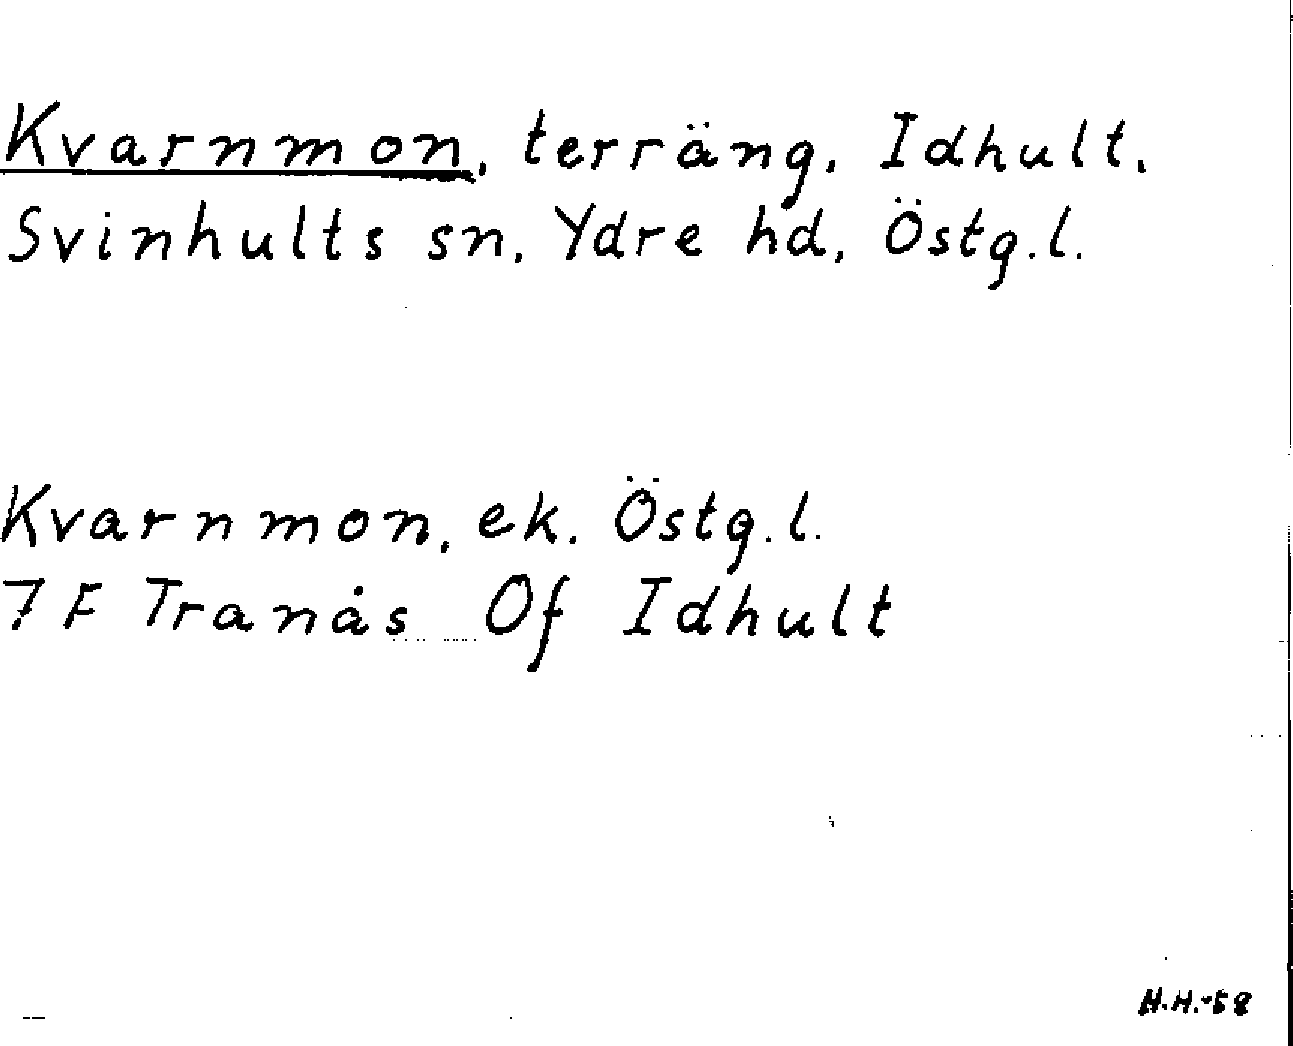 Kvarnmon, terräng, Idhult,
Svinhults sn, Ydre hd, Östg.l.
Kvarnmon, ek. Östg.l.
7 F Tranås Of Idhult
H.H.-58